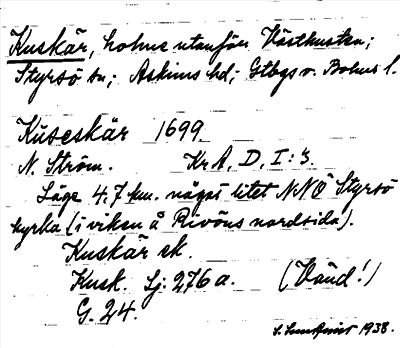 Kuskär, holme utanför Västkusten;
Styrsö sn; Askims hd; Gtbgs o. Bohus l.
Kuseskär 1699.
N. Ström. KrA, D, I:3.
Läge 4,7 km. något litet NNÖ Styrsö
kyrka (i viken å Rivöns nordsida).
Kuskär ek.
Kusk. Lj: 276 a. (Vänd!)
G. 24.
S. Lundqvist 1938.